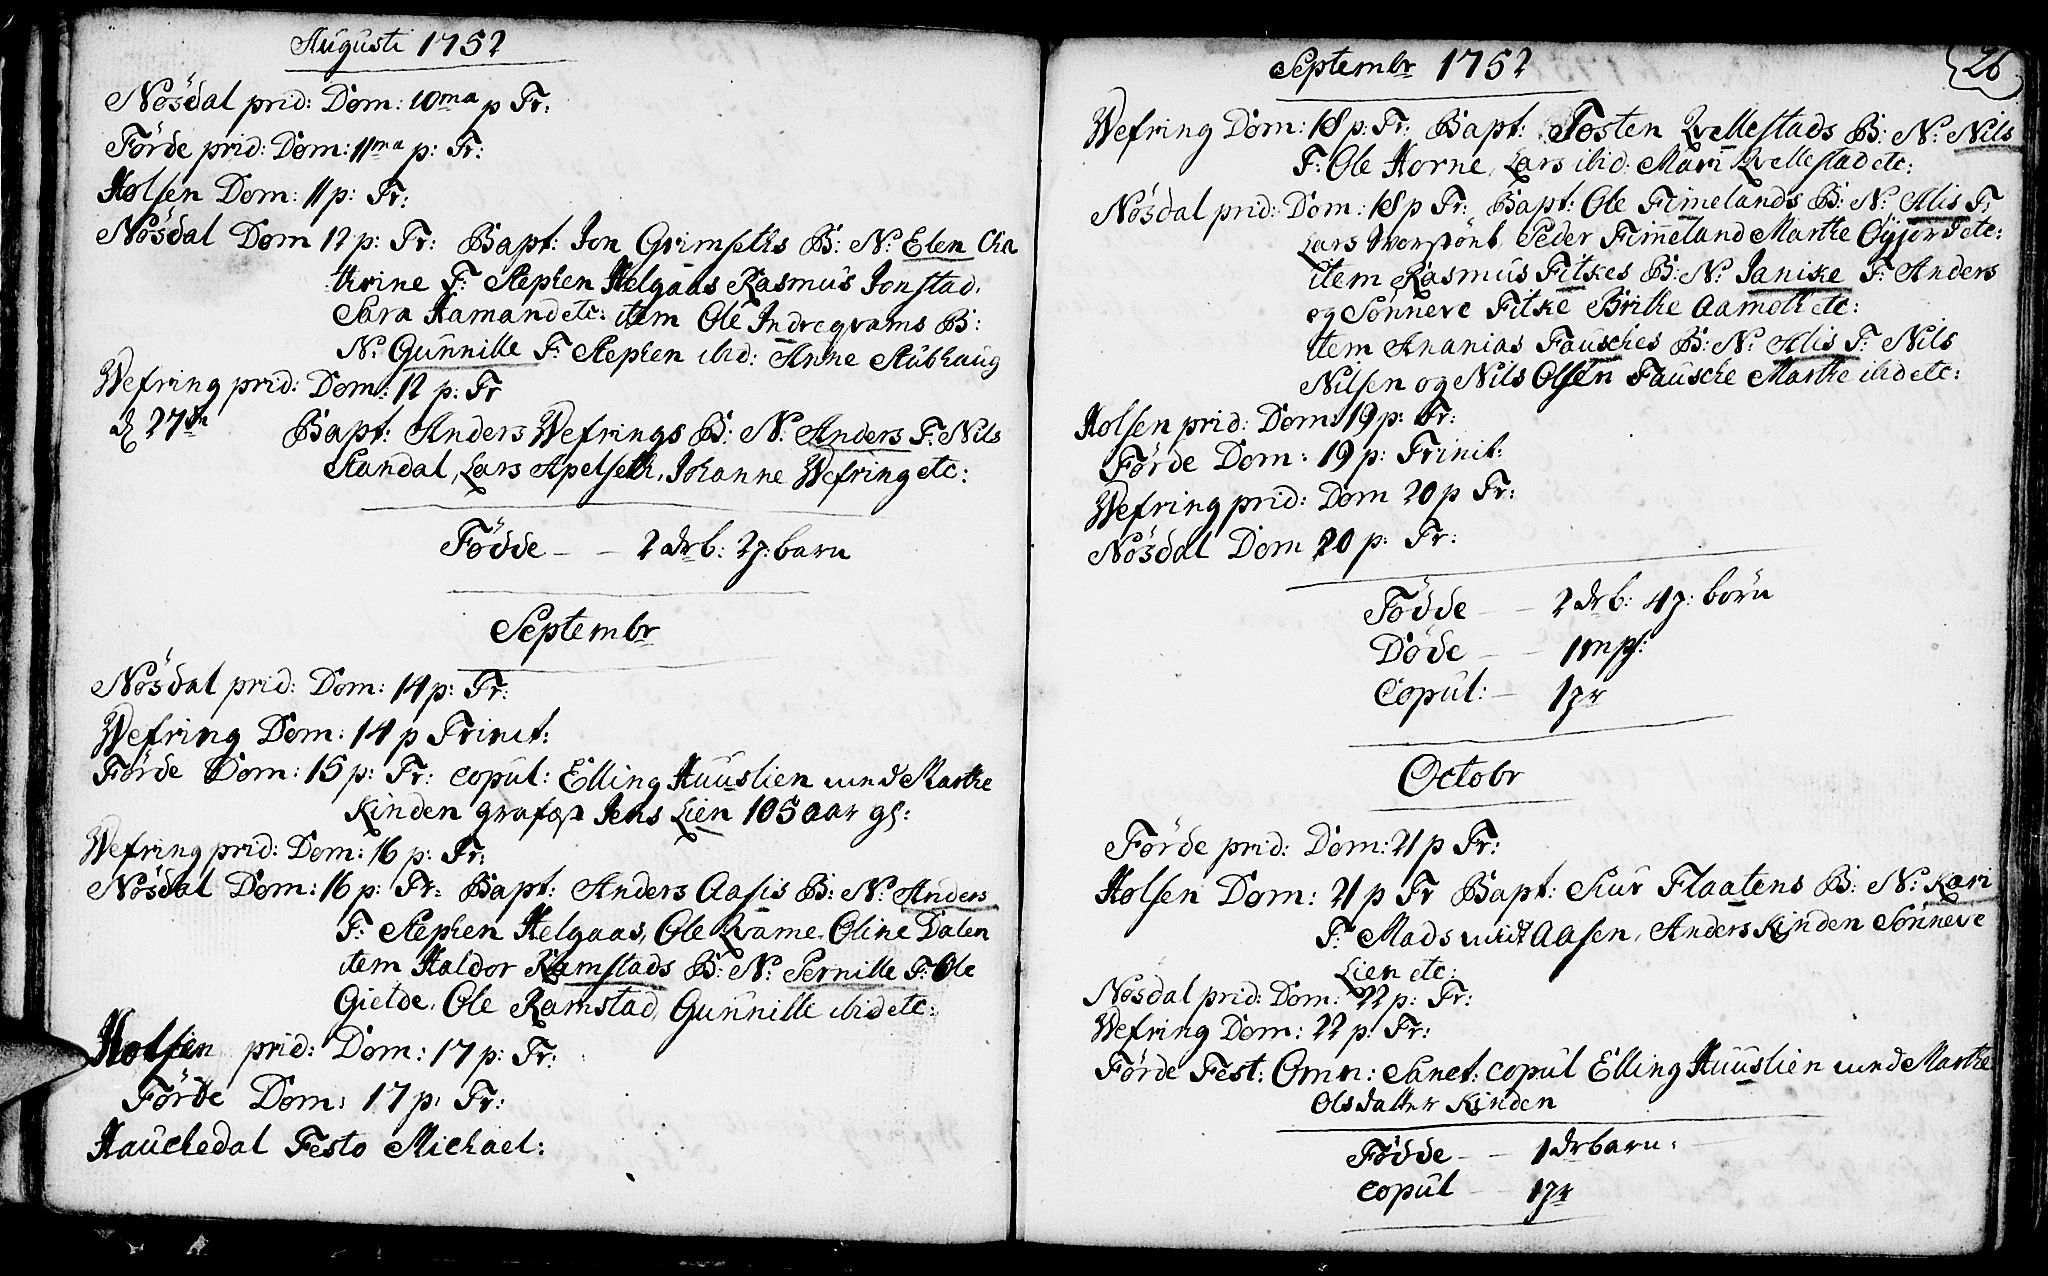 Augusti 1752
Nösdal prid: Dom: 10ma p Tr:
Förde prid: Dom: 11ma p: Tr:
Holsen Dom: 11 p: Tr:
Nösdal Dom 12 p: Tr: Bapt: Jon Grimseths B: N: Elen Cha
thrine F: Stephen Helgaas Rasmus Jonstad.
Sara Hamand etc: item Ole Indregrams B:
N: Gunnille F: Stephen ibid: Anne Stubhaug
Wefring prid: Dom: 12 p: Tr
d 27de Bapt: Anders Wefrings B: N: Anders F: Nils
Standal, Lars Apelseth, Johanne Wefring etc:
Födde - - 2 drb: 2 p: barn
Septembr
Nösdal prid: Dom: 14 p: Tr:
Wefring Dom: 14 p Trinit:
Förde Dom: 15 p: Tr: copul: Elling Huuslien med Marthe
Kinden Jens Lien 105 aar gl:
Wefring prid: Dom: 16 p: Tr:
Nösdal Dom: 16 p: Tr: Bapt: Anders Aasis B: N: Anders
F: Stephen Helgaas, Ole Qvame. Oline Dalen
item Haldor Ramstads B: N: Pernille F: Ole
Gielde. Ole Ramstad, Gunnille ibid etc:
Holsen prid: Dom: 17 p: Tr:
Förde Dom: 17 p: Tr:
Hauchedal Festo Michael:
26
Septembr 1752
Wefring Dom: 18 p: Tr: Bapt: Tosten Qvellestads B: N: Nils
F: Ole Horne, Lars ibid: Mari Qvellestad etc:
Nösdal prid: Dom: 18 p Tr: Bapt: Ole Fimelands B: N: Alis F
Lars Peder Fimeland Marthe etc:
item Rasmus Fitkes B: N: Janike F: Anders
og Sönneve Fitke Brithe Aamoth etc:
item Ananias Fausches B: N: Alis F: Nils
Nilsen og Nils Olsen Fausche Marthe ibid etc:
Holsen prid: Dom: 19 p: Tr:
Förde Dom: 19 p: Trinit:
Wefring prid: Dom 20 p Tr:
Nösdal Dom 20 p: Tr:
Födde - - 2 drb: 4 p: börn
Döde - - 1 mp:
Copul: - 1 pr
Octobr
Förde prid: Dom: 21 p Tr:
Holsen Dom: 21 p Tr Bapt: Siur Flaatens B: N: Kari
F: Mads Aasen, Anders Kinden Sönneve
Lien etc:
Nösdal prid: Dom: 22 p: Tr:
Wefring Dom: 22 p: Tr:
Förde Fest: Omn: Sanct: copul Elling Huuslien med Marthe
Olsdatter Kinden
Födde - - 1 drbarn:
Copul - - 1 pr